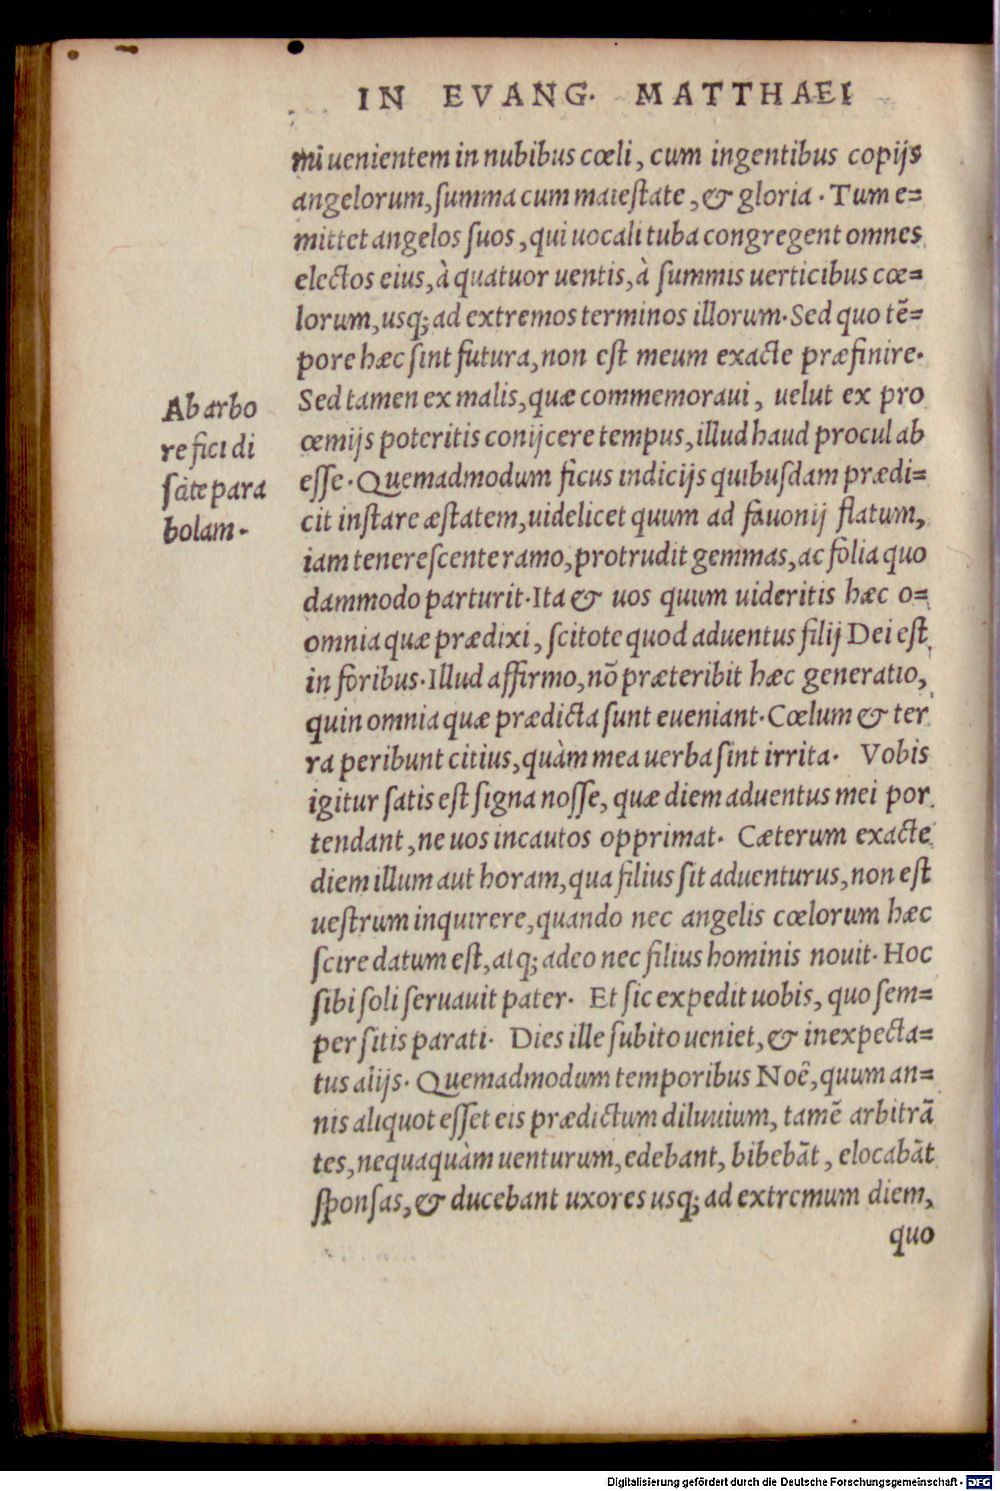 IN EVANG. MATTHAEI
mi uenientem in nubibus cœli, cum ingentibus copijs
angelorum, summa cum maiestate, & gloria. Tum e=
mittet angelos suos, qui uocali tuba congregent omnes
electos eius, à quatuor uentis, à summis uerticibus cœ=
lorum, usq; ad extremos terminos illorum. Sed quo tē=
pore hæc sint futura, non est meum exacte præfinire.
Sed tamen ex malis, quæ commemoraui, uelut ex pro
œmijs poteritis conijcere tempus, illud haud procul ab
esse. Quemadmodum ficus indicijs quibusdam prædi=
cit instare æstatem, uidelicet quum ad fauonij flatum,
iam tenerescente ramo, protrudit gemmas, ac folia quo
dammodo parturit. Ita & uos quum uideritis hæc o=
omnia quæ prædixi, scitote quod aduentus filij Dei est
in foribus. Illud affirmo, nō præteribit hæc generatio,
quin omnia quæ prædicta sunt eueniant. Cœlum & ter
ra peribunt citius, quàm mea uerba sint irrita. Vobis
igitur satis est signa nosse, quæ diem aduentus mei por
tendant, ne uos incautos opprimat. Cæterum exacte
diem illum aut horam, qua filius sit aduenturus, non est
uestrum inquirere, quando nec angelis cœlorum hæc
scire datum est, atq; adeo nec filius hominis nouit. Hoc
sibi soli seruauit pater. Et sic expedit uobis, quo sem=
per sitis parati. Dies ille subito ueniet, & inexpecta=
tus alijs. Quemadmodum temporibus Noê, quum an=
nis aliquot esset eis prædictum diluuium, tamē arbitrā
tes, nequaquàm uenturum, edebant, bibebāt, elocabāt
sponsas, & ducebant uxores usq; ad extremum diem,
quo
Ab arbo
re fici di
scite para
bolam.
Digitalisierung gefördert durch die Deutsche Forschungsgemeinschaft - DFG